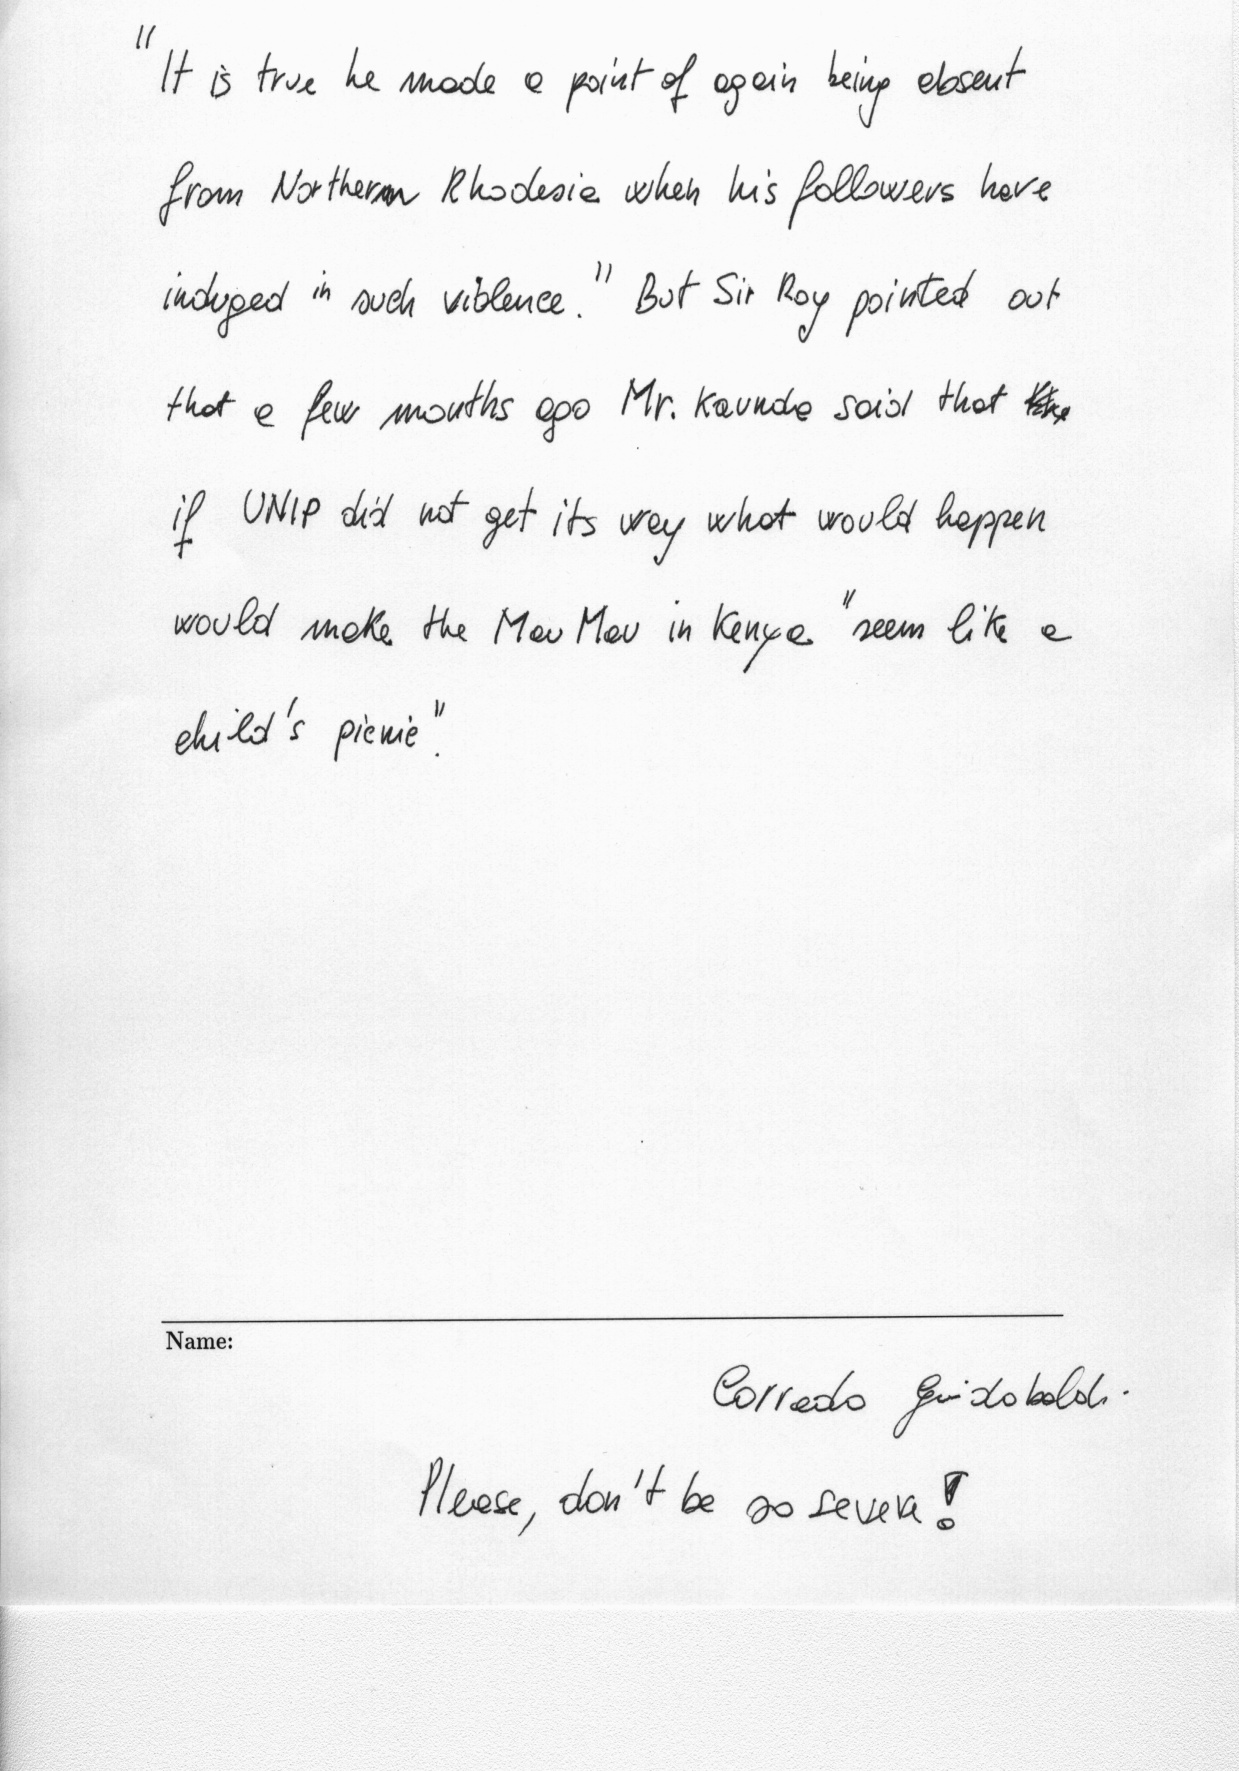 "It is true he made a point of again being absent
from Northern Rhodesia when his followers have
induged in such violence." But Sir Roy pointed out
that a few months ago Mr. Kaunda said that
if UNIP did not get its way what would happen
would make the Mau Mau in Kenya "seem like a
child's picnic".
Name:
Corrado Guidobaldi
Please, don't be so severe!